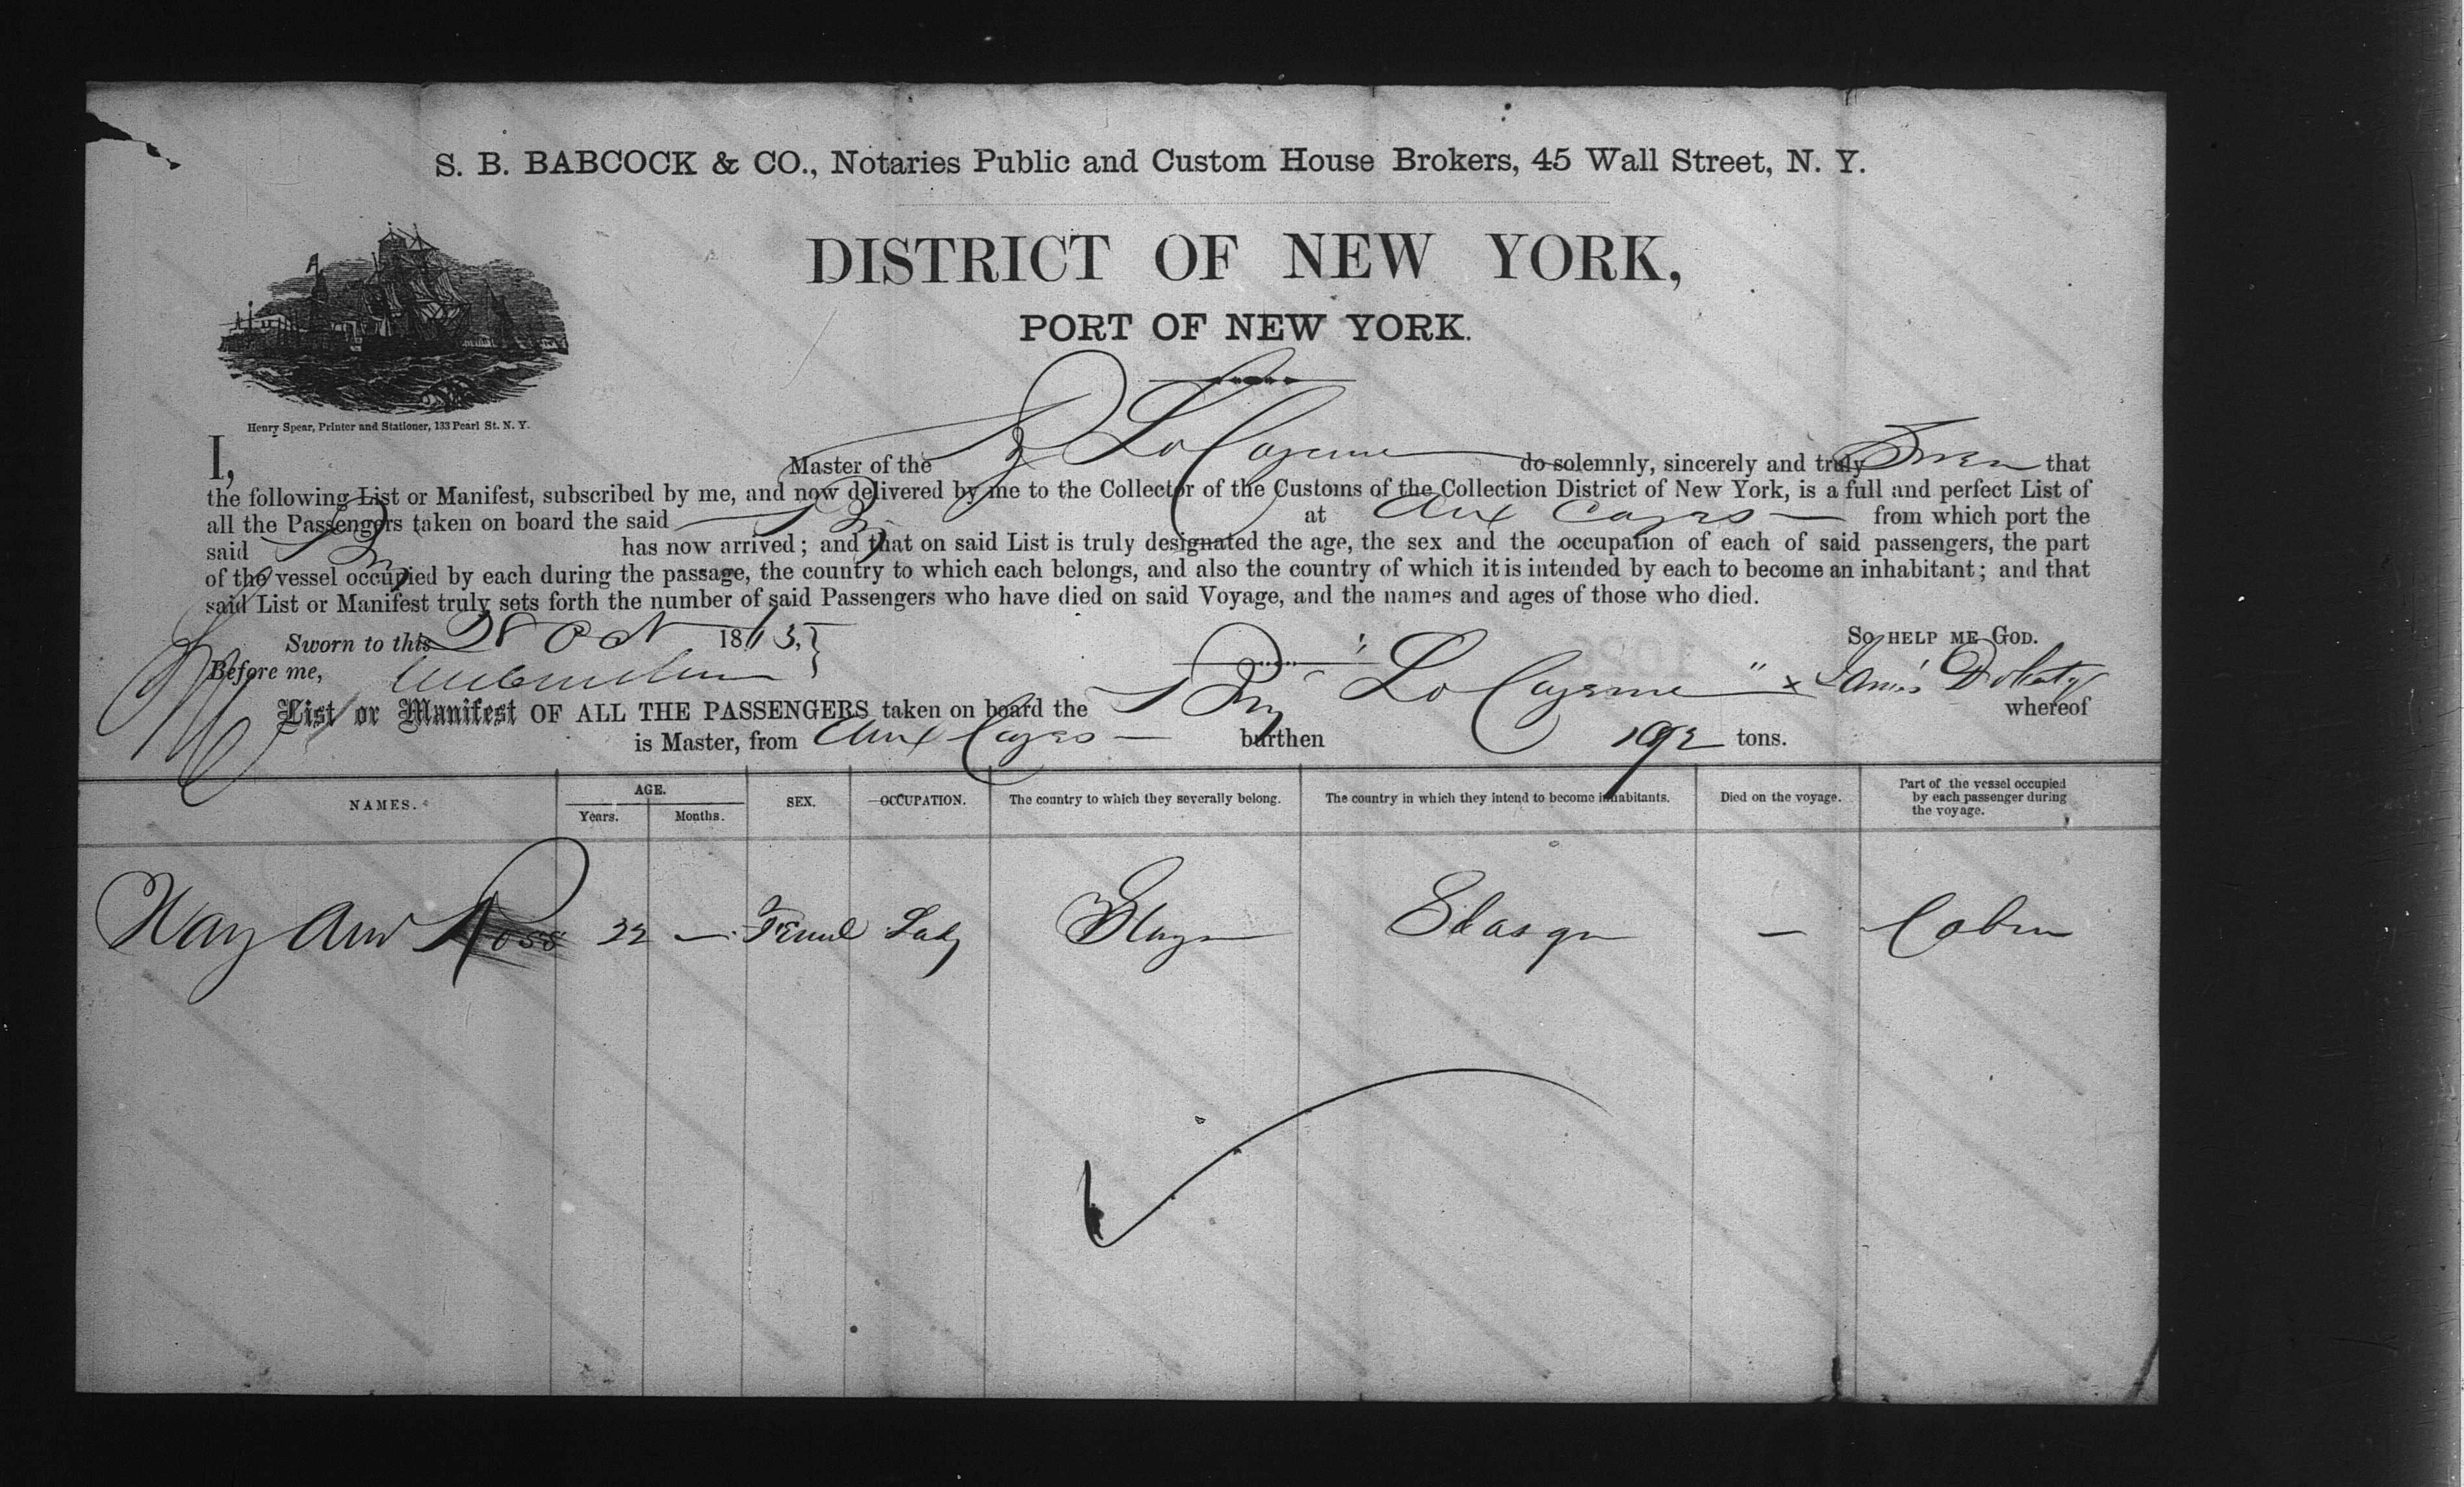 S. B. BABCOCK & CO., Notaries Public and Custom House Brokers, 45 Wall Street, N. Y.
DISTRICT OF NEW YORK,
PORT OF NEW YORK.
Henry Spear, Printer and Stationer, 133 Pearl St. N. Y.
I, Master of the La Cayenne do solemnly, sincerely and truly Swear that
the following List or Manifest, subscribed by me, and now delivered by me to the Collector of the Customs of the Collection District of New York, is a full and perfect List of
all the Passengers taken on board the said Brig at Aux Cayes from which port the
said Brig has now arrived; and that on said List is truly designated the age, the sex and the occupation of each of said passengers, the part
of the vessel occupied by each during the passage, the country to which each belongs, and also the country of which it is intended by each to become an inhabitant; and that
said List or Manifest truly sets forth the number of said Passengers who have died on said Voyage, and the names and ages of those who died.
Sworn to this 28 Oct 1873, SO HELP ME GOD.
Before me,
List or Manifest OF ALL THE PASSENGERS taken on board the Brig "La Cayenne" x James Doherty whereof
is Master, from Aux Cayes burthen 192 tons.
NAMES. AGE. Years. Months. SEX. OCCUPATION. The country to which they severally belong. The country in which they intend to become inhabitants. Died on the voyage. Part of the vessel occupied by each passenger during the voyage.
Ann Ross 22 — Femel Lady Glasgow — Cabin